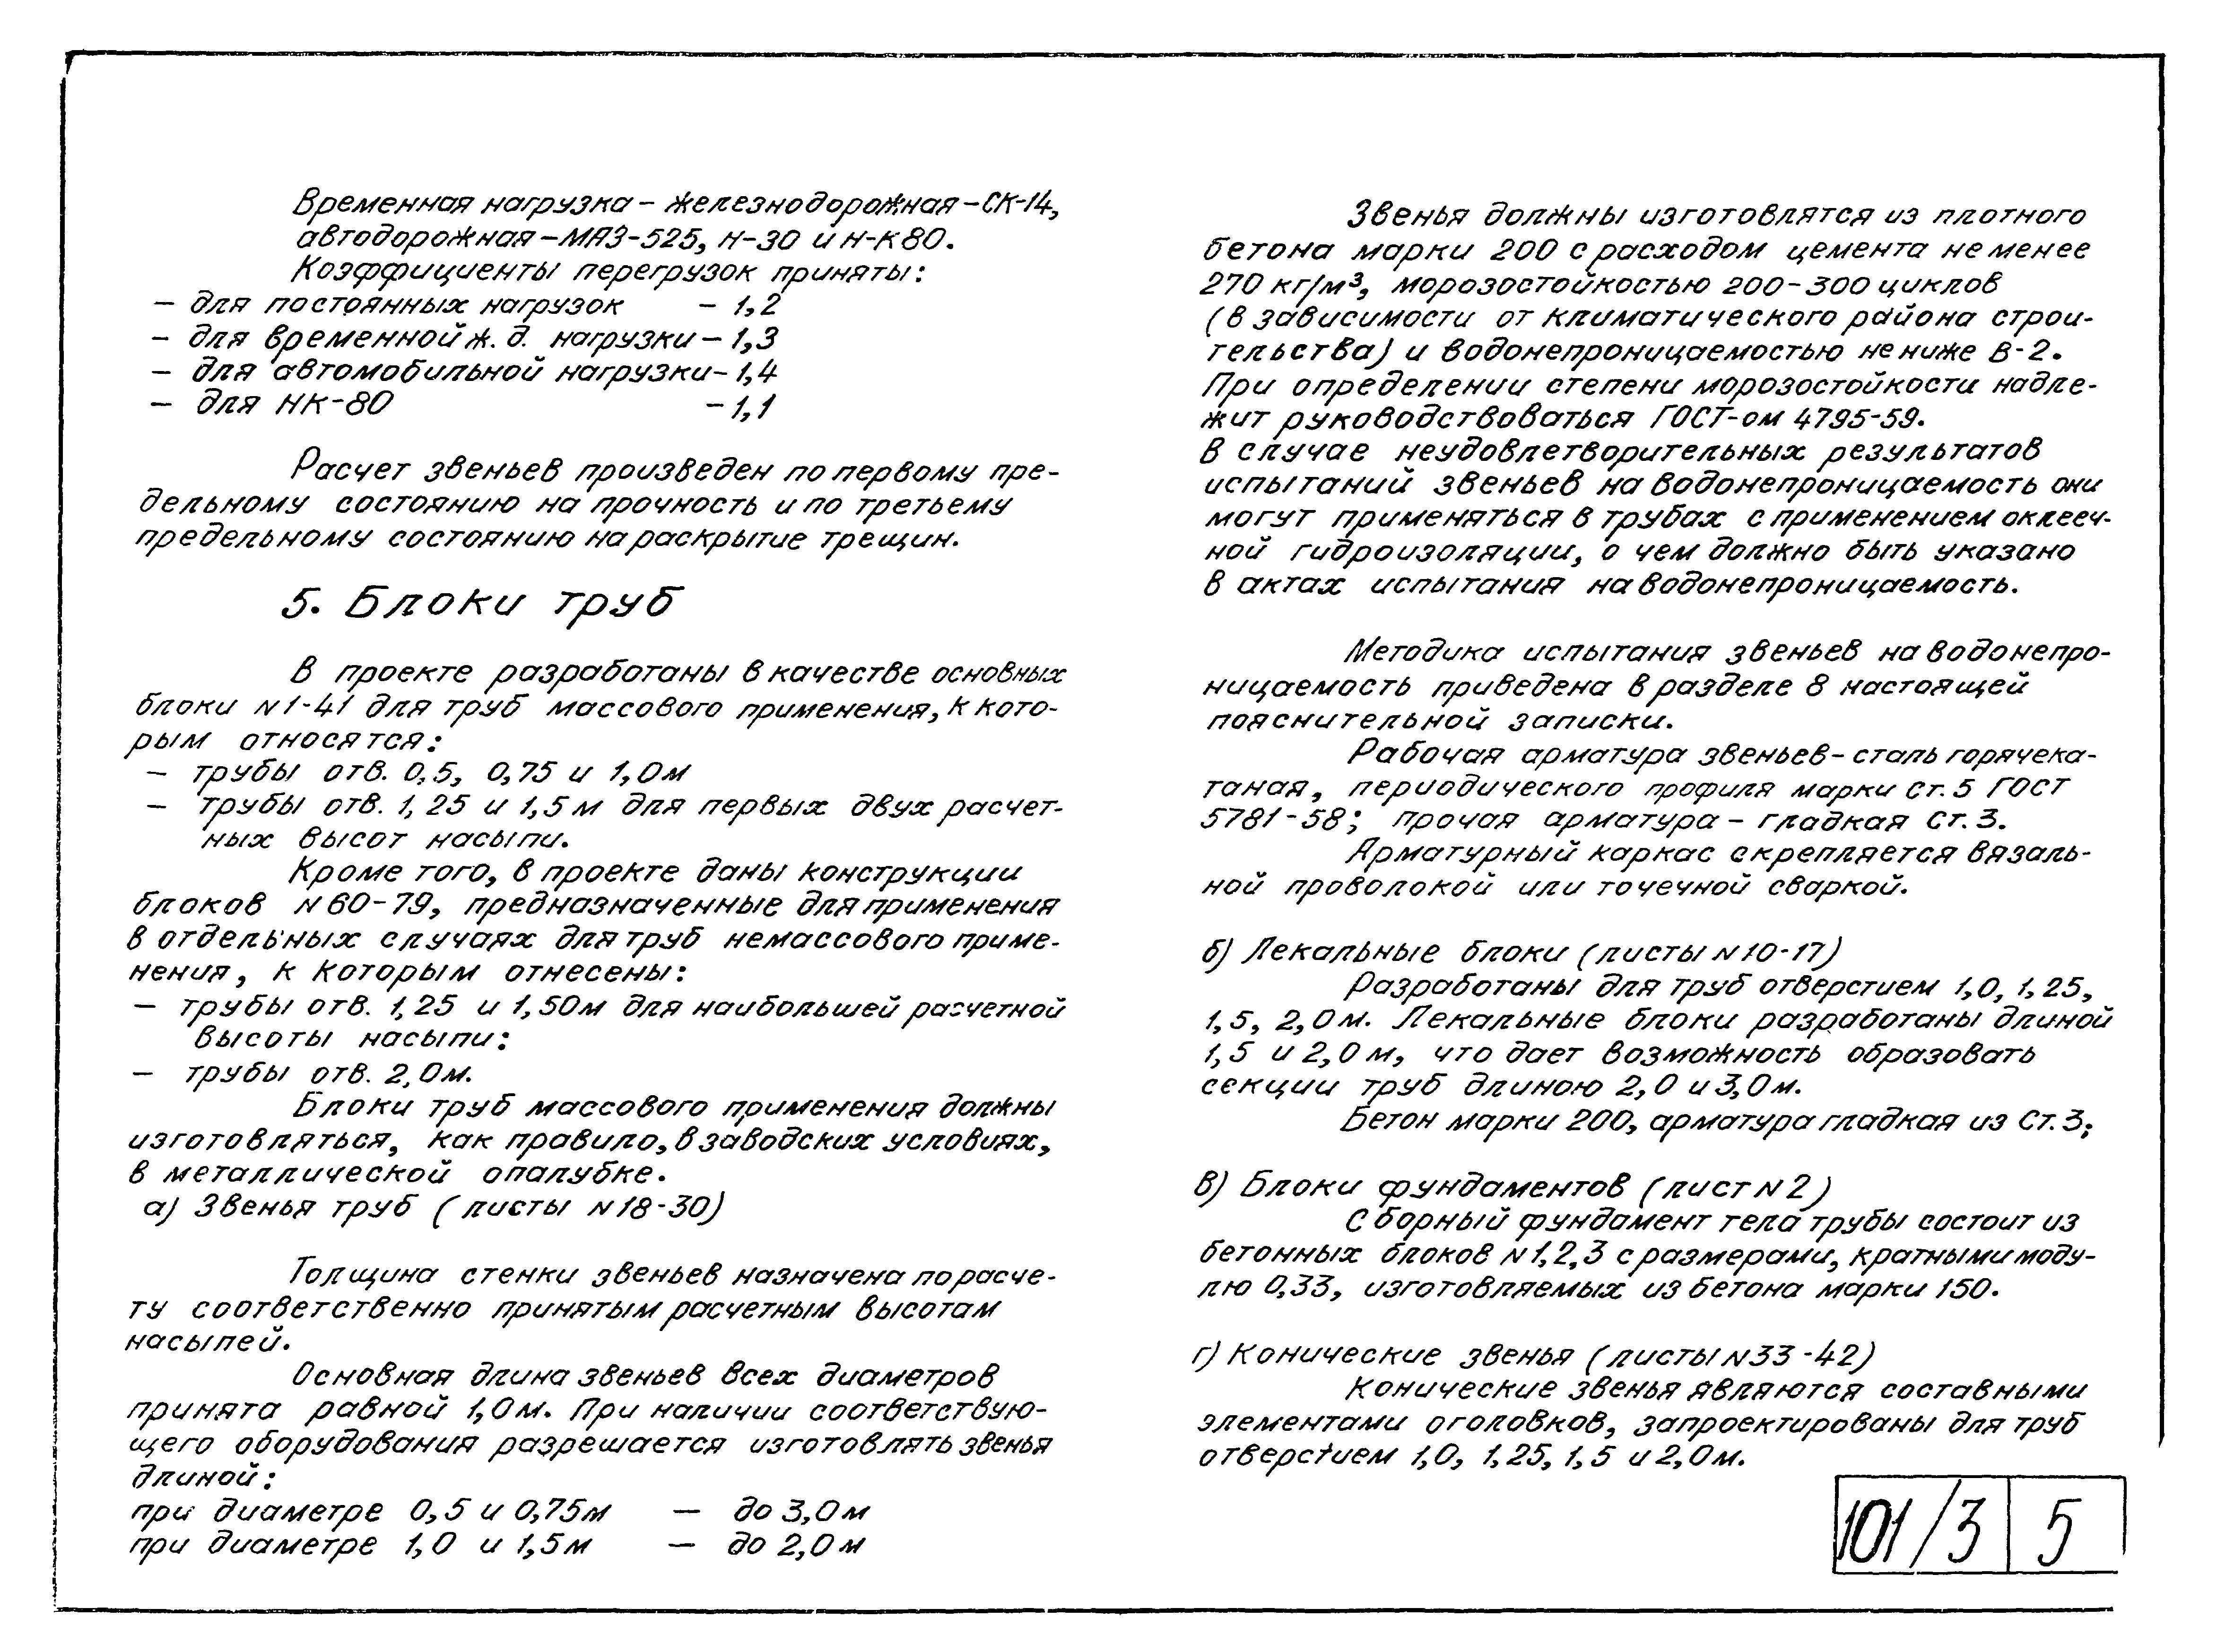 Временная нагрузка – железнодорожная – СК-14,
автодорожная – МАЗ-525, Н-30 и Н-К80.
Коэффициенты перегрузок приняты:
– для постоянных нагрузок – 1,2
– для временной ж. д. нагрузки – 1,3
– для автомобильной нагрузки – 1,4
– для НК-80 – 1,1
Расчет звеньев произведен по первому пре-
дельному состоянию на прочность и по третьему
предельному состоянию на раскрытие трещин.
5. Блоки труб
В проекте разработаны в качестве основных
блоки N1-41 для труб массового применения, к кото-
рым относятся:
– трубы отв. 0,5, 0,75 и 1,0м
– трубы отв. 1,25 и 1,5м для первых двух расчет-
ных высот насыпи.
Кроме того, в проекте даны конструкции
блоков N60-79, предназначенные для применения
в отдельных случаях для труб немассового приме-
нения, к которым отнесены:
– трубы отв. 1,25 и 1,50м для наибольшей расчетной
высоты насыпи:
– трубы отв. 2,0м.
Блоки труб массового применения должны
изготовляться, как правило, в заводских условиях,
в металлической опалубке.
а) Звенья труб (листы N18-30)
Толщина стенки звеньев назначена по расче-
ту соответственно принятым расчетным высотам
насыпей.
Основная длина звеньев всех диаметров
принята равной 1,0м. При наличии соответствую-
щего оборудования разрешается изготовлять звенья
длиной:
при диаметре 0,5 и 0,75м – до 3,0м
при диаметре 1,0 и 1,5м – до 2,0м
Звенья должны изготовлятся из плотного
бетона марки 200 с расходом цемента не менее
270 кг/м³, морозостойкостью 200-300 циклов
(в зависимости от климатического района строи-
тельства) и водонепроницаемостью не ниже В-2.
При определении степени морозостойкости надле-
жит руководствоваться ГОСТ-ом 4795-59.
В случае неудовлетворительных результатов
испытаний звеньев на водонепроницаемость они
могут применяться в трубах с применением оклееч-
ной гидроизоляции, о чем должно быть указано
в актах испытания на водонепроницаемость.
Методика испытания звеньев на водонепро-
ницаемость приведена в разделе 8 настоящей
пояснительной записки.
Рабочая арматура звеньев – сталь горячека-
таная, периодического профиля марки Ст.5 ГОСТ
5781-58; прочая арматура – гладкая Ст.3.
Арматурный каркас скрепляется вязаль-
ной проволокой или точечной сваркой.
б) Лекальные блоки (листы N10-17)
Разработаны для труб отверстием 1,0, 1,25,
1,5, 2,0м. Лекальные блоки разработаны длиной
1,5 и 2,0м, что дает возможность образовать
секции труб длиною 2,0 и 3,0м.
Бетон марки 200, арматура гладкая из Ст.3;
в) Блоки фундаментов (лист N2)
Сборный фундамент тела трубы состоит из
бетонных блоков N1,2,3 с размерами, кратными моду-
лю 0,33, изготовляемых из бетона марки 150.
г) Конические звенья (листы N33-42)
Конические звенья являются составными
элементами оголовков, запроектированы для труб
отверстием 1,0, 1,25, 1,5 и 2,0м.
101/3 5